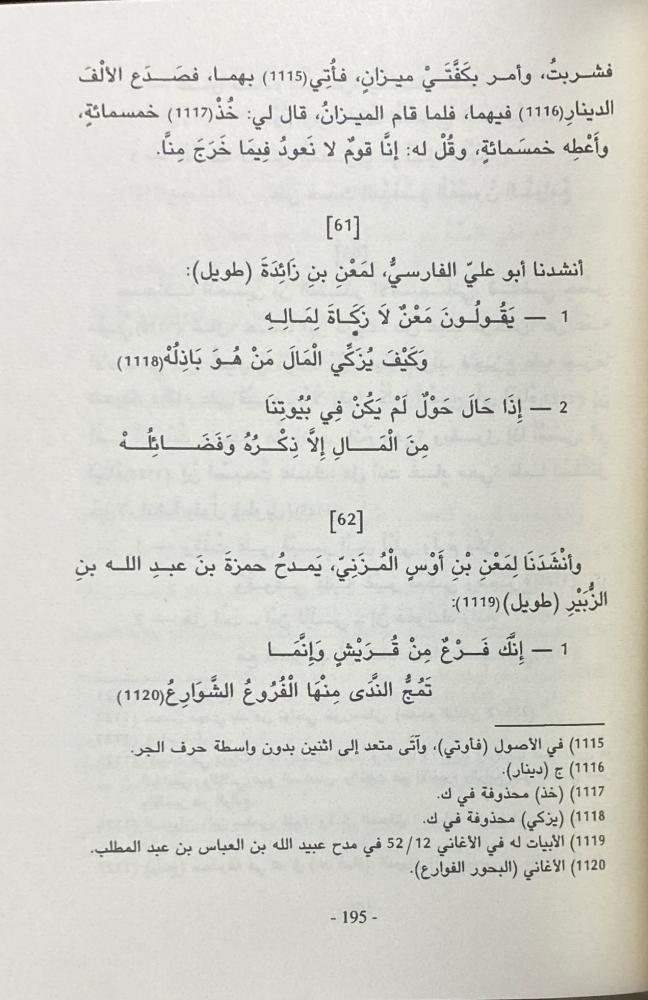 فشربتُ، وأمر بكَفَّتَيْ ميـزانٍ، فأُتِي(1115) بهمـا، فصَـدَع الألْفَ
الدينارِ(1116) فيهما، فلما قام الميـزانُ، قال لي: خُذْ(1117) خمسمائةٍ،
وأَعْطِه خمسَمائةٍ، وقُلْ له: إنَّا قومٌ لا نَعودُ فِيمَا خَرَجَ مِنَّا.
[61]
أنشدنا أبو عليّ الفارسيُّ، لمَعْنِ بنِ زَائِدَةَ (طويل):
1 — يَقُولُونَ مَعْنٌ لاَ زَكَاةَ لِمَالِهِ
وَكَيْفَ يُزَكِّي الْمَالَ مَنْ هُوَ بَاذِلُهْ(1118)
2 — إِذَا حَالَ حَوْلٌ لَمْ يَكُنْ فِي بُيُوتِنَا
مِنَ الْمَـالِ إِلاَّ ذِكْـرُهُ وَفَضَـائِلُـهْ
[62]
وأنْشَدَنَا لِمَعْنِ بْنِ أَوْسٍ الْمُـزَنِيّ، يَمدحُ حمزةَ بنَ عبـدِ اللـه بنِ
الزُّبَيْرِ (طويل)(1119):
1 — إِنَّكَ فَـرْعٌ مِنْ قُـرَيْشٍ وَإِنَّمَـا
تَمُجُّ النَّدَى مِنْهَا الْفُرُوعُ الشَّوَارِعُ(1120)
1115) في الأصول (فأوتي)، وآتَى متعد إلى اثنين بدون واسطة حرف الجر.
1116) ج (دينار).
1117) (خذ) محذوفة في ك.
1118) (يزكي) محذوفة في ك.
1119) الأبيات له في الأغاني 12/52 في مدح عبيد الله بن العباس بن عبد المطلب.
1120) الأغاني (البحور الفوارع).
- 195 -